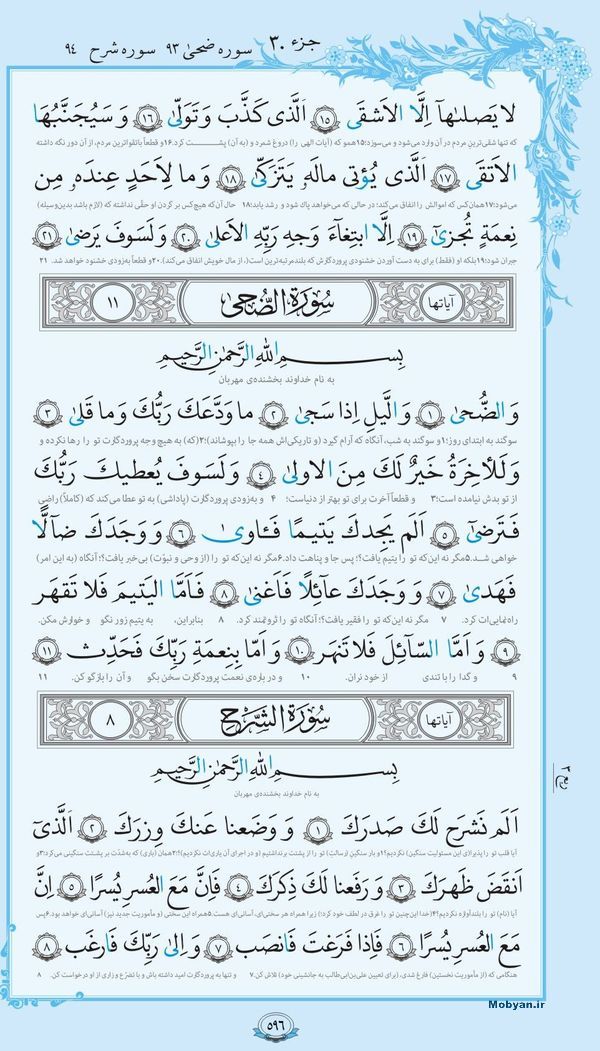 جزء ۳۰ سوره ضحیٰ ۹۳ سوره شرح ۹۴
لا يَصلىٰهآ اِلَّا الاَشقَى ۱۵ اَلَّذى كَذَّبَ وَ تَوَلّىٰ ۱۶ وَ سَيُجَنَّبُهَا
که تنها شقی‌ترین مردم در آن وارد می‌شود و می‌سوزد؛۱۵همو که (آیات الهی را) دروغ شمرد و (به آن) پشت کرد.۱۶و قطعاً باتقواترین مردم، از آن دور نگه داشته
الاَتقَى ۱۷ اَلَّذى يُؤتى مالَهو يَتَزَكّىٰ ۱۸ وَ ما لِاَحَدٍ عِندَهو مِن
می‌شود؛۱۷همان‌کس که اموالش را انفاق می‌کند؛ در حالی که می‌خواهد پاك شود و رشد یابد؛۱۸ حال آن‌که هیچ‌کس بر گردن او حقّی نداشته که (لازم باشد بدین‌وسیله)
نِعمَةٍ تُجزىٰٓ ۱۹ اِلَّا ابتِغآءَ وَجهِ رَبِّهِ الاَعلىٰ ۲۰ وَ لَسَوفَ يَرضىٰ ۲۱
جبران شود؛۱۹بلکه او (فقط) برای به دست آوردن خشنودی پروردگارش که بلندمرتبه‌ترین است(، از مال خویش انفاق می‌کند).۲۰و قطعاً به‌زودی خشنود خواهد شد. ۲۱
آیاتها سُورَةُ الضُّحىٰ ۱۱
بِسمِ اللهِ الرَّحمٰنِ الرَّحيمِ
به نام خداوند بخشنده‌ی مهربان
وَ الضُّحىٰ ۱ وَ الَّيلِ اِذا سَجىٰ ۲ ما وَدَّعَكَ رَبُّكَ وَ ما قَلىٰ ۳
سوگند به ابتدای روز؛۱و سوگند به شب، آنگاه که آرام گیرد (و تاریکی‌اش همه جا را بپوشاند)؛۲(که) به هیچ وجه پروردگارت تو را رها نکرده و
وَ لَلأخِرَةُ خَيرٌ لَكَ مِنَ الاولىٰ ۴ وَ لَسَوفَ يُعطيكَ رَبُّكَ
از تو بدش نیامده است؛۳ و قطعاً آخرت برای تو بهتر از دنیاست؛ ۴ و به‌زودی پروردگارت (پاداشی) به تو عطا می‌کند که (کاملاً) راضی
فَتَرضىٰٓ ۵ اَلَم يَجِدكَ يَتيمًا فَـٔاوىٰ ۶ وَ وَجَدَكَ ضآلًّا
خواهی شد.۵مگر نه این‌که تو را یتیم یافت؟؛ پس جا و پناهت داد.۶مگر نه این‌که تو را (از وحی و نبوّت) بی‌خبر یافت؟؛ آنگاه (به این امر)
فَهَدىٰ ۷ وَ وَجَدَكَ عآئِلًا فَاَغنىٰ ۸ فَاَمَّا اليَتيمَ فَلا تَقهَر
راه‌نمایی‌ات کرد. ۷ مگر نه این‌که تو را فقیر یافت؟؛ آنگاه تو را ثروتمند کرد. ۸ بنابراین، به یتیم زور نگو و خوارش مکن.
۹ وَ اَمَّا السّآئِلَ فَلا تَنهَر ۱۰ وَ اَمّا بِنِعمَةِ رَبِّكَ فَحَدِّث ۱۱
۹ و گدا را با تندی از خود نران. ۱۰ و درباره‌ی نعمت پروردگارت سخن بگو و آن را بازگو کن. ۱۱
آیاتها سُورَةُ الشَّرْحِ ۸
بِسمِ اللهِ الرَّحمٰنِ الرَّحيمِ
به نام خداوند بخشنده‌ی مهربان
اَلَم نَشرَح لَكَ صَدرَكَ ۱ وَ وَضَعنا عَنكَ وِزرَكَ ۲ اَلَّذىٓ
آیا قلب تو را پذیرا(ی این مسئولیت سنگین) نکردیم؟۱و بار سنگین (رسالتِ) تو را از پشتت برنداشتیم (و در اجرای آن یاری‌ات نکردیم)؟؛۲همان (باری) که به‌شدّت بر پشتت سنگینی می‌کرد؛۳و
اَنقَضَ ظَهرَكَ ۳ وَ رَفَعنا لَكَ ذِكرَكَ ۴ فَاِنَّ مَعَ العُسرِ يُسرًا ۵ اِنَّ
آیا (نام) تو را بلندآوازه نکردیم؟۴(خدا این‌چنین تو را غرق در لطف خود کرد؛) زیرا همراه هر سختی‌ای، آسانی‌ای هست.۵همراه این سختی (و مأموریت جدید نیز) آسانی‌ای خواهد بود.۶پس
مَعَ العُسرِ يُسرًا ۶ فَاِذا فَرَغتَ فَانصَب ۷ وَ اِلىٰ رَبِّكَ فَارغَب ۸
هنگامی که (از مأموریت نخستین) فارغ شدی، (برای تعیین علی‌بن‌ابی‌طالب به جانشینی خود) تلاش کن.۷ و تنها به پروردگارت امید داشته باش و با تضرّع و زاری از او درخواست کن. ۸
Mobyan.ir
۵۹۶